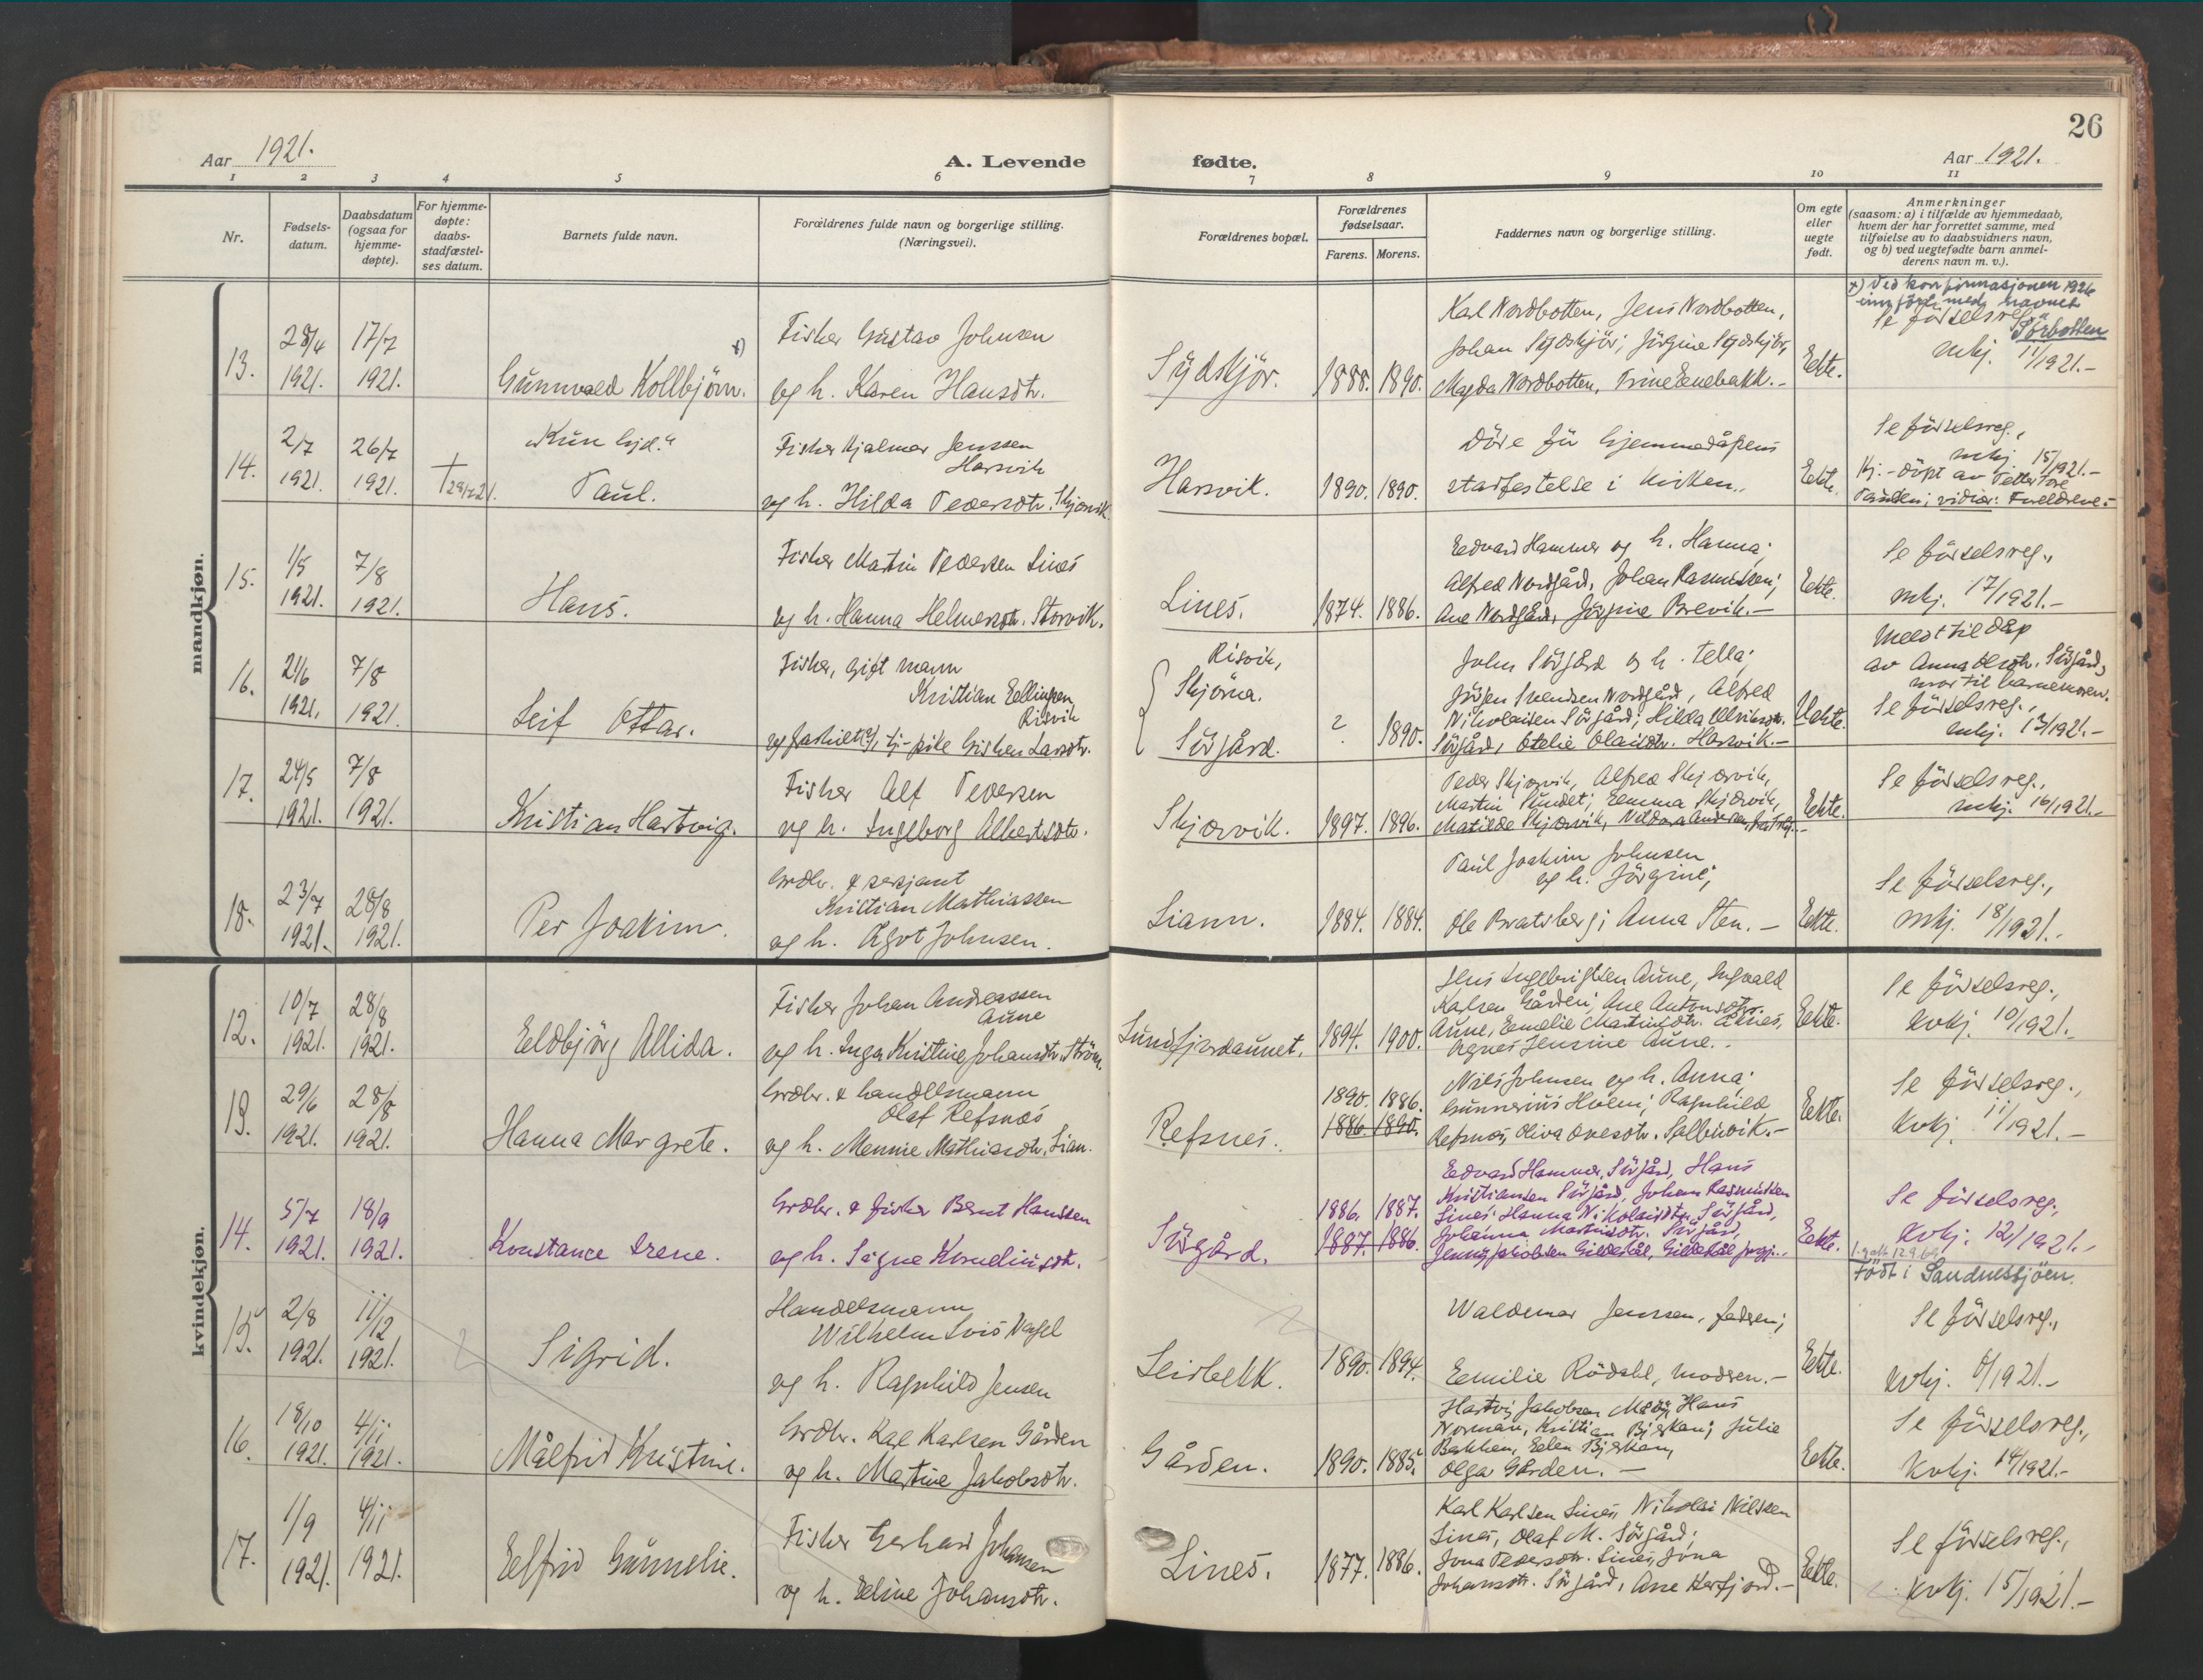 26
Aar 1921.
A. Levende fødte.
Aar 1921.
1 2 3 4 5 6 7 8 9 10 11
Nr.
Fødsels-
datum.
Daabsdatum
(ogsaa for
hjemme-
døpte).
For hjemme-
døpte:
daabs-
stadfæstel-
ses datum.
Barnets fulde navn.
Forældrenes fulde navn og borgerlige stilling.
(Næringsvei).
Forældrenes bopæl.
Forældrenes
fødselsaar.
Farens. Morens.
Faddernes navn og borgerlige stilling.
Om egte
eller
uegte
født.
Anmerkninger
(saasom: a) i tilfælde av hjemmedaab,
hvem der har forrettet samme, med
tilføielse av to daabsvidners navn,
og b) ved uegtefødte barn anmel-
derens navn m. v.).
mandkjøn.
13.
28/4
1921.
17/7
1921.
Gunnvald Kollbjörn.
Fisker Gustav Johnsen
og h. Karen Hansdtr.
Sydskjör.
1888. 1890.
Karl Nordbotten, Jens Nordbotten,
Johan Sydskjör; Jörgine Sydskjör,
Magda Nordbotten, Trine Enebakk.-
Ekte.
x) Ved konfirmasjonen 1926
innfört med navnet
Sörbotten
Se födselsreg.,
mkj. 11/1921.-
14.
2/7
1921.
26/7
1921.
"Kun hjd."
Paul.
Fisker Hjalmar Jenssen
Harsvik
og h. Hilda Pedersdtr. Skjervik.
Harsvik.
1890. 1890.
Döde för hjemmedåpens
stadfestelse i kirken.
Ekte.
Se födselsreg.,
mkj. 15/1921.-
Hj.-döpt av Petter Tore
Paulsen; vidner: Foreldrene.-
15.
1/5
1921.
7/8
1921.
Hans.
Fisker Martin Pedersen Lines
og h. Hanna Helmersdtr. Storvik.
Lines.
1874. 1886.
Edvard Hammer og h. Hanna;
Alfred Nordgård, Johan Rasmussen;
Ane Nordgård, Jörgine Brevik.-
Ekte.
Se födselsreg.,
mkj. 17/1921.-
16.
21/6
1921.
7/8
1921.
Leif Ottar.
Fisker, gift mann
Kristian Ellingsen
Risvik
Risvik,
Skjörna.
Sörgård.
? 1890.
John Sörgård og h. Tella;
Jörgen Svendsen Nordgård, Alfred
Nikolaisen Sörgård; Hilda Ulriksdtr.
Sörgård, Otelie Olaisdtr. Harsvik.-
Uekte.
Meldt til dåp
av Anna Olsdtr. Sörgård,
mor til barnemoren.
Se födselsreg.,
mkj. 13/1921.-
17.
24/5
1921.
7/8
1921.
Kristian Hartvig.
Fisker Alf Pedersen
og h. Ingeborg Albertsdtr.
Skjærvik.
1897. 1896.
Peder Skjærvik, Alfred Skjærvik,
Martin Sundet; Emma Skjærvik,
Matilde Skjærvik,
Ekte.
Se födselsreg.,
mkj. 16/1921.-
18.
23/7
1921.
28/8
1921.
Per Joakim.
Grdbr. & sersjant
Kristian Mathiassen
og h. Ågot Johnsen.
Liann.
1884. 1884.
Paul Joakim Johnsen
og h. Jörgine;
Ole Bratsberg; Anna Sten.-
Ekte.
Se födselsreg.,
mkj. 18/1921.-
kvindekjøn.
12.
10/7
1921.
28/8
1921.
Eldbjörg Allida.
Fisker Johan Andreassen
Aune
og h. Inga Kristine Johansdtr. Ström.
Sundfjordaunet.
1894. 1900.
Jens Ingebrigtsen Aune, Ingvald
Karlsen Gården; Ane Antonsdtr.
Aune, Emelie Martinsdtr. Aunes,
Agnes Jensine Aune.-
Ekte.
Se födselsreg.,
kvkj. 10/1921.-
13.
29/6
1921.
28/8
1921.
Hanna Margrete.
Grdbr. & handelsmann
Olaf Refsnes
og h. Mennie Mathiasdtr. Lian.
Refsnes.
1890. 1886.
1886. 1890.
Nils Johnsen og h. Anna;
Gunnerius Holm; Ragnhild
Refsnes, Oliva Ovesdtr. Selbuvik.-
Ekte.
Se födselsreg.,
kvkj. 11/1921.-
14.
5/7
1921.
18/9
1921.
Konstance Irene.
Grdbr. & fisker Bernt Hanssen
og h. Signe Korneliusdtr.
Sörgård.
1886. 1887.
1887. 1886.
Edvard Hammer, Sörgård, Hans
Kristiansen Sörgård, Johan Rasmussen
Lines; Hanna Nikolaisdtr. Sörgård,
Johanna Martinsdtr. Sörgård,
Jenny Jakobsen Gildeskål, Gildeskål
Ekte.
Se födselsreg.,
kvkj. 12/1921.-
15.
2/8
1921.
11/12
1921.
Sigrid.
Handelsmann
Wilhelm Lois Nagel
og h. Ragnhild Jensen
Leirbekk.
1890. 1894.
Waldemar Jenssen, fadren;
Emilie Rödahl, modren.-
Ekte.
Födt i Sandnessjöen.
Se födselsreg.,
kvkj. 6/1921.-
16.
18/10
1921.
4/11
1921.
Målfrid Kristine.
Grdbr. Karl Karlsen Gården
og h. Martine Jakobsdtr.
Gården.
1890. 1885.
Hartvig Jakobsen Hans
Norman, Kristian Bjerkan; Julie
Bakken, Ellen Bjerkan,
Olga Gården.-
Ekte.
Se födselsreg.,
kvkj. 14/1921.-
17.
1/9
1921.
4/11
1921.
Elfrid Gunnelie.
Fisker Gerhard Johansen
og h. Eline Johansdtr.
Lines.
1877. 1886.
Karl Karlsen Lines, Nikolai Nilssen
Lines, Olaf M. Sörgård;
Jona Pedersdtr. Lines, Jona
Johansdtr. Sörgård, Ane Herfjord.-
Ekte.
Se födselsreg.,
kvkj. 15/1921.-